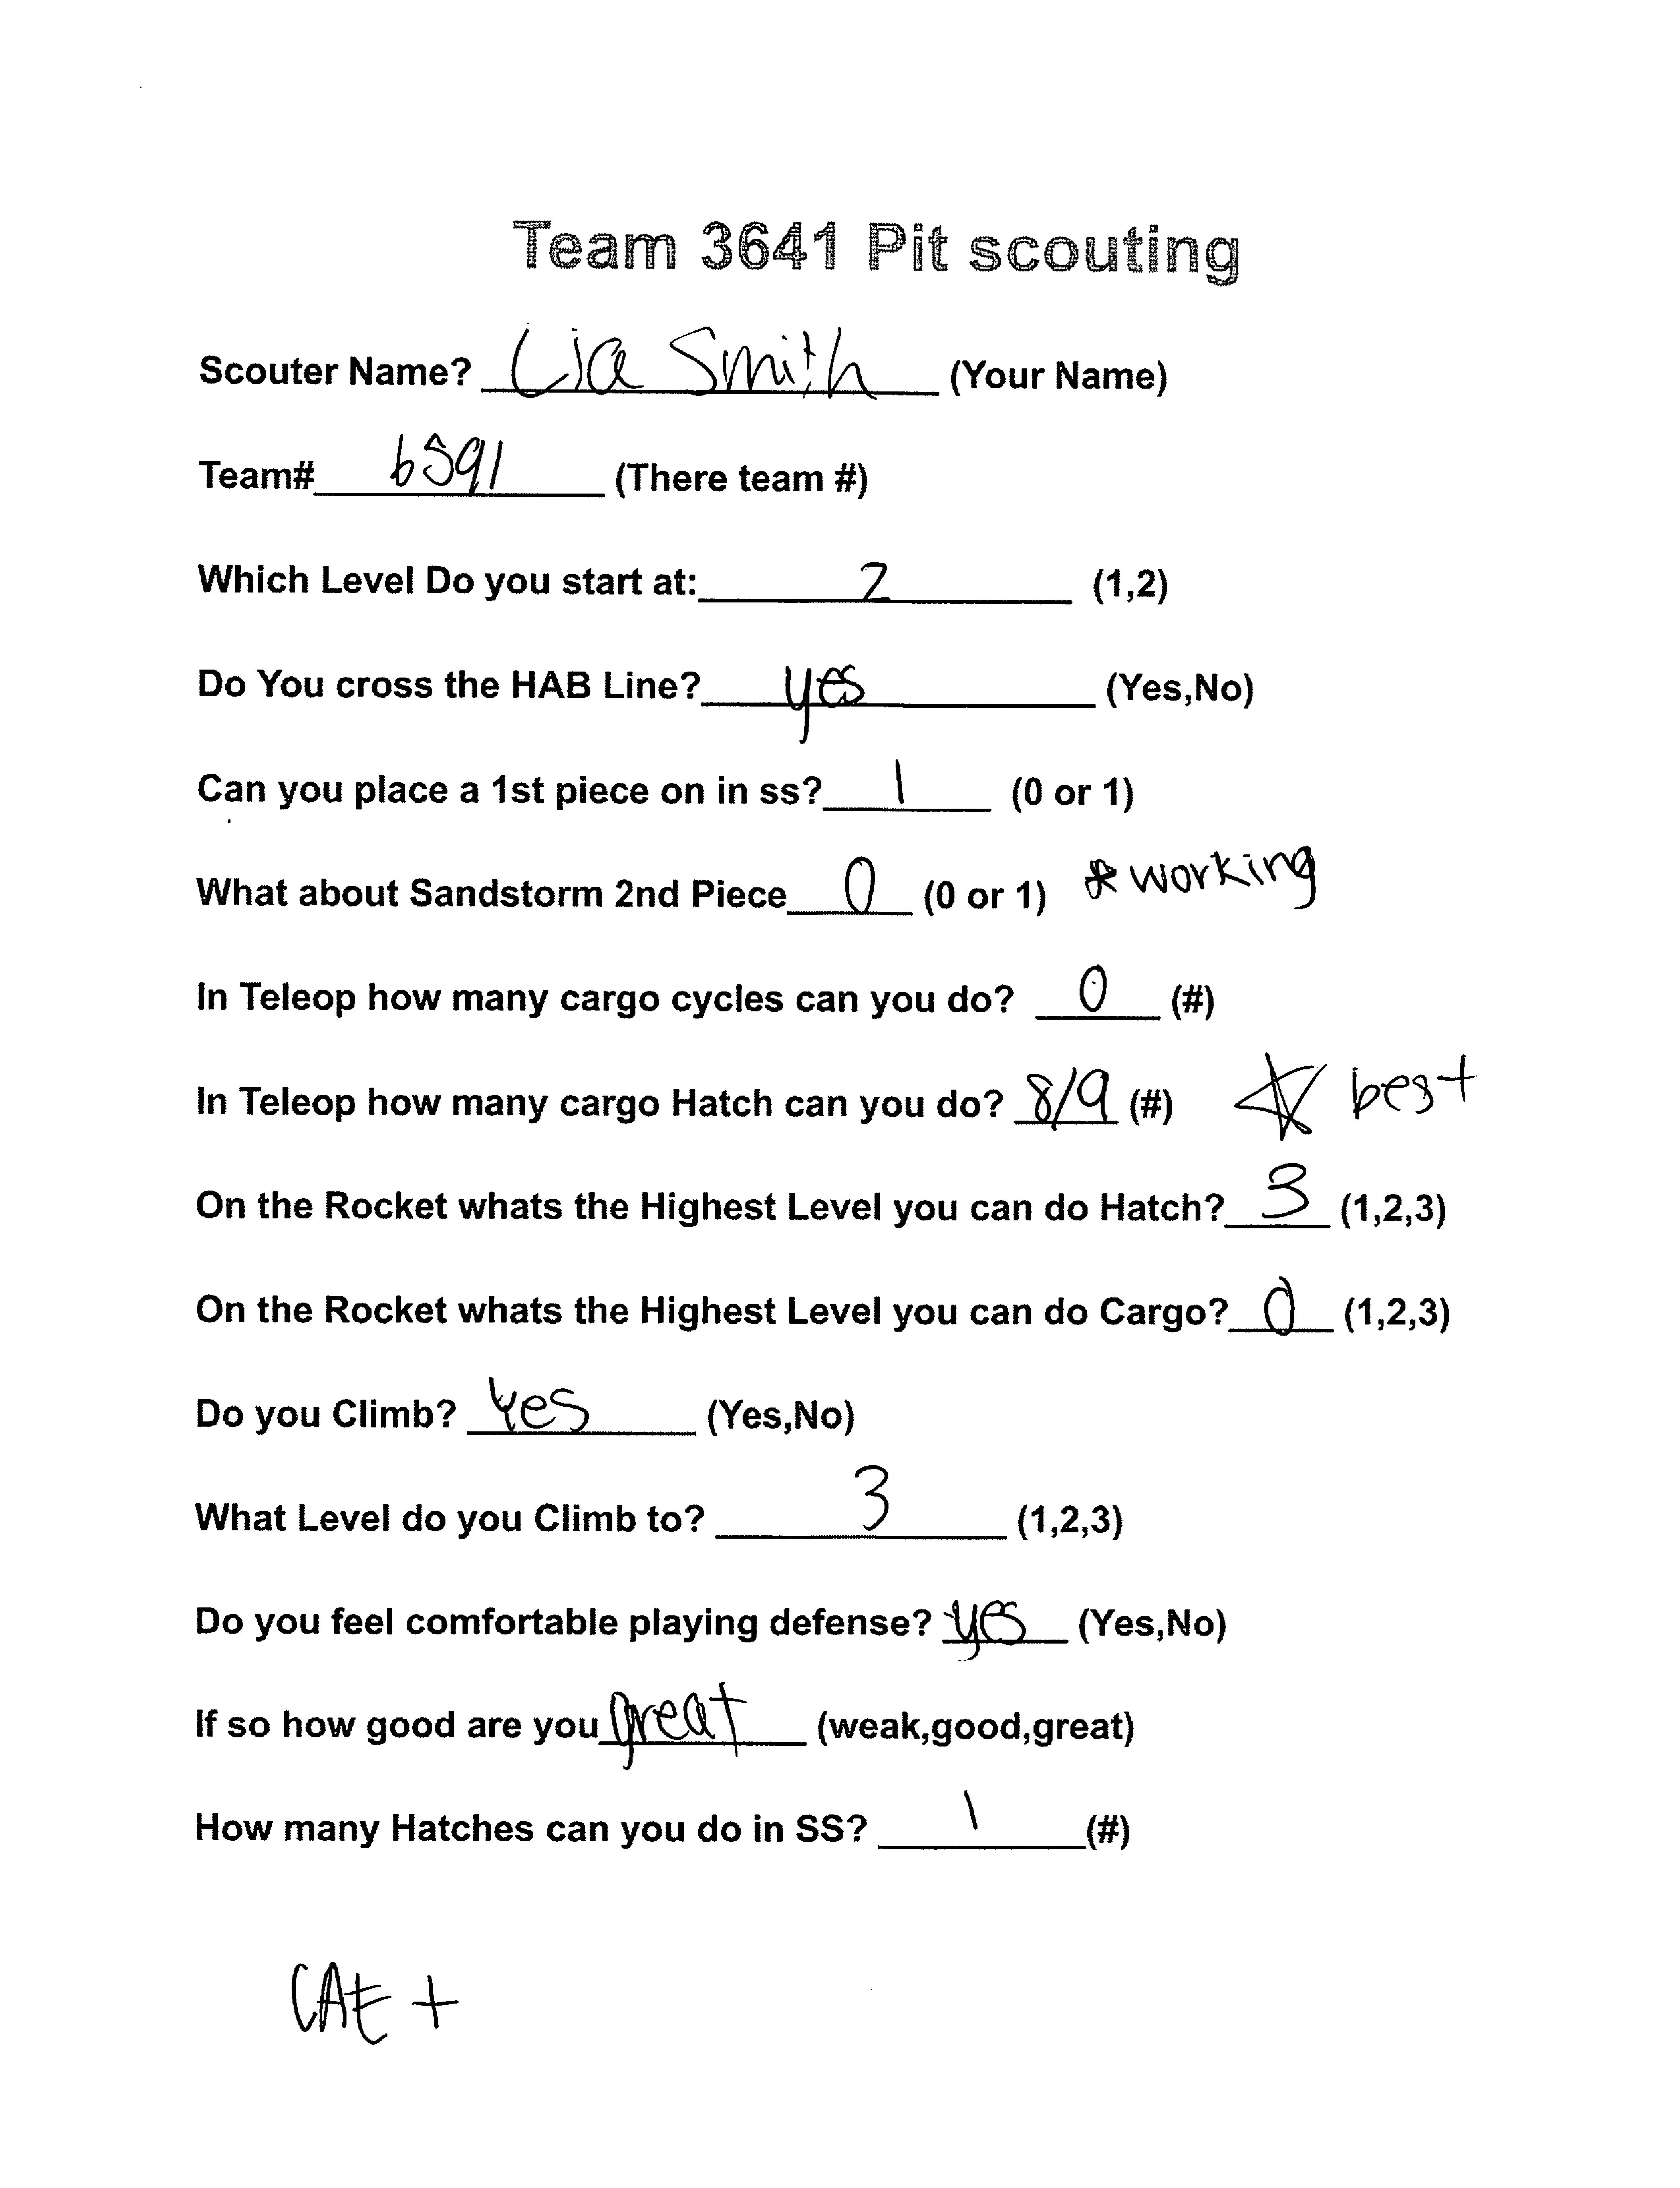 Team 3641 Pit scouting
Scouter Name? Lia Smith (Your Name)
Team# 6591 (There team #)
Which Level Do you start at: 2 (1,2)
Do You cross the HAB Line? yes (Yes,No)
Can you place a 1st piece on in ss? 1 (0 or 1)
What about Sandstorm 2nd Piece 0 (0 or 1) * working
In Teleop how many cargo cycles can you do? 0 (#)
In Teleop how many cargo Hatch can you do? 8/9 (#) ☆ best
On the Rocket whats the Highest Level you can do Hatch? 3 (1,2,3)
On the Rocket whats the Highest Level you can do Cargo? 0 (1,2,3)
Do you Climb? Yes (Yes,No)
What Level do you Climb to? 3 (1,2,3)
Do you feel comfortable playing defense? yes (Yes,No)
If so how good are you great (weak,good,great)
How many Hatches can you do in SS? 1 (#)
CAE +